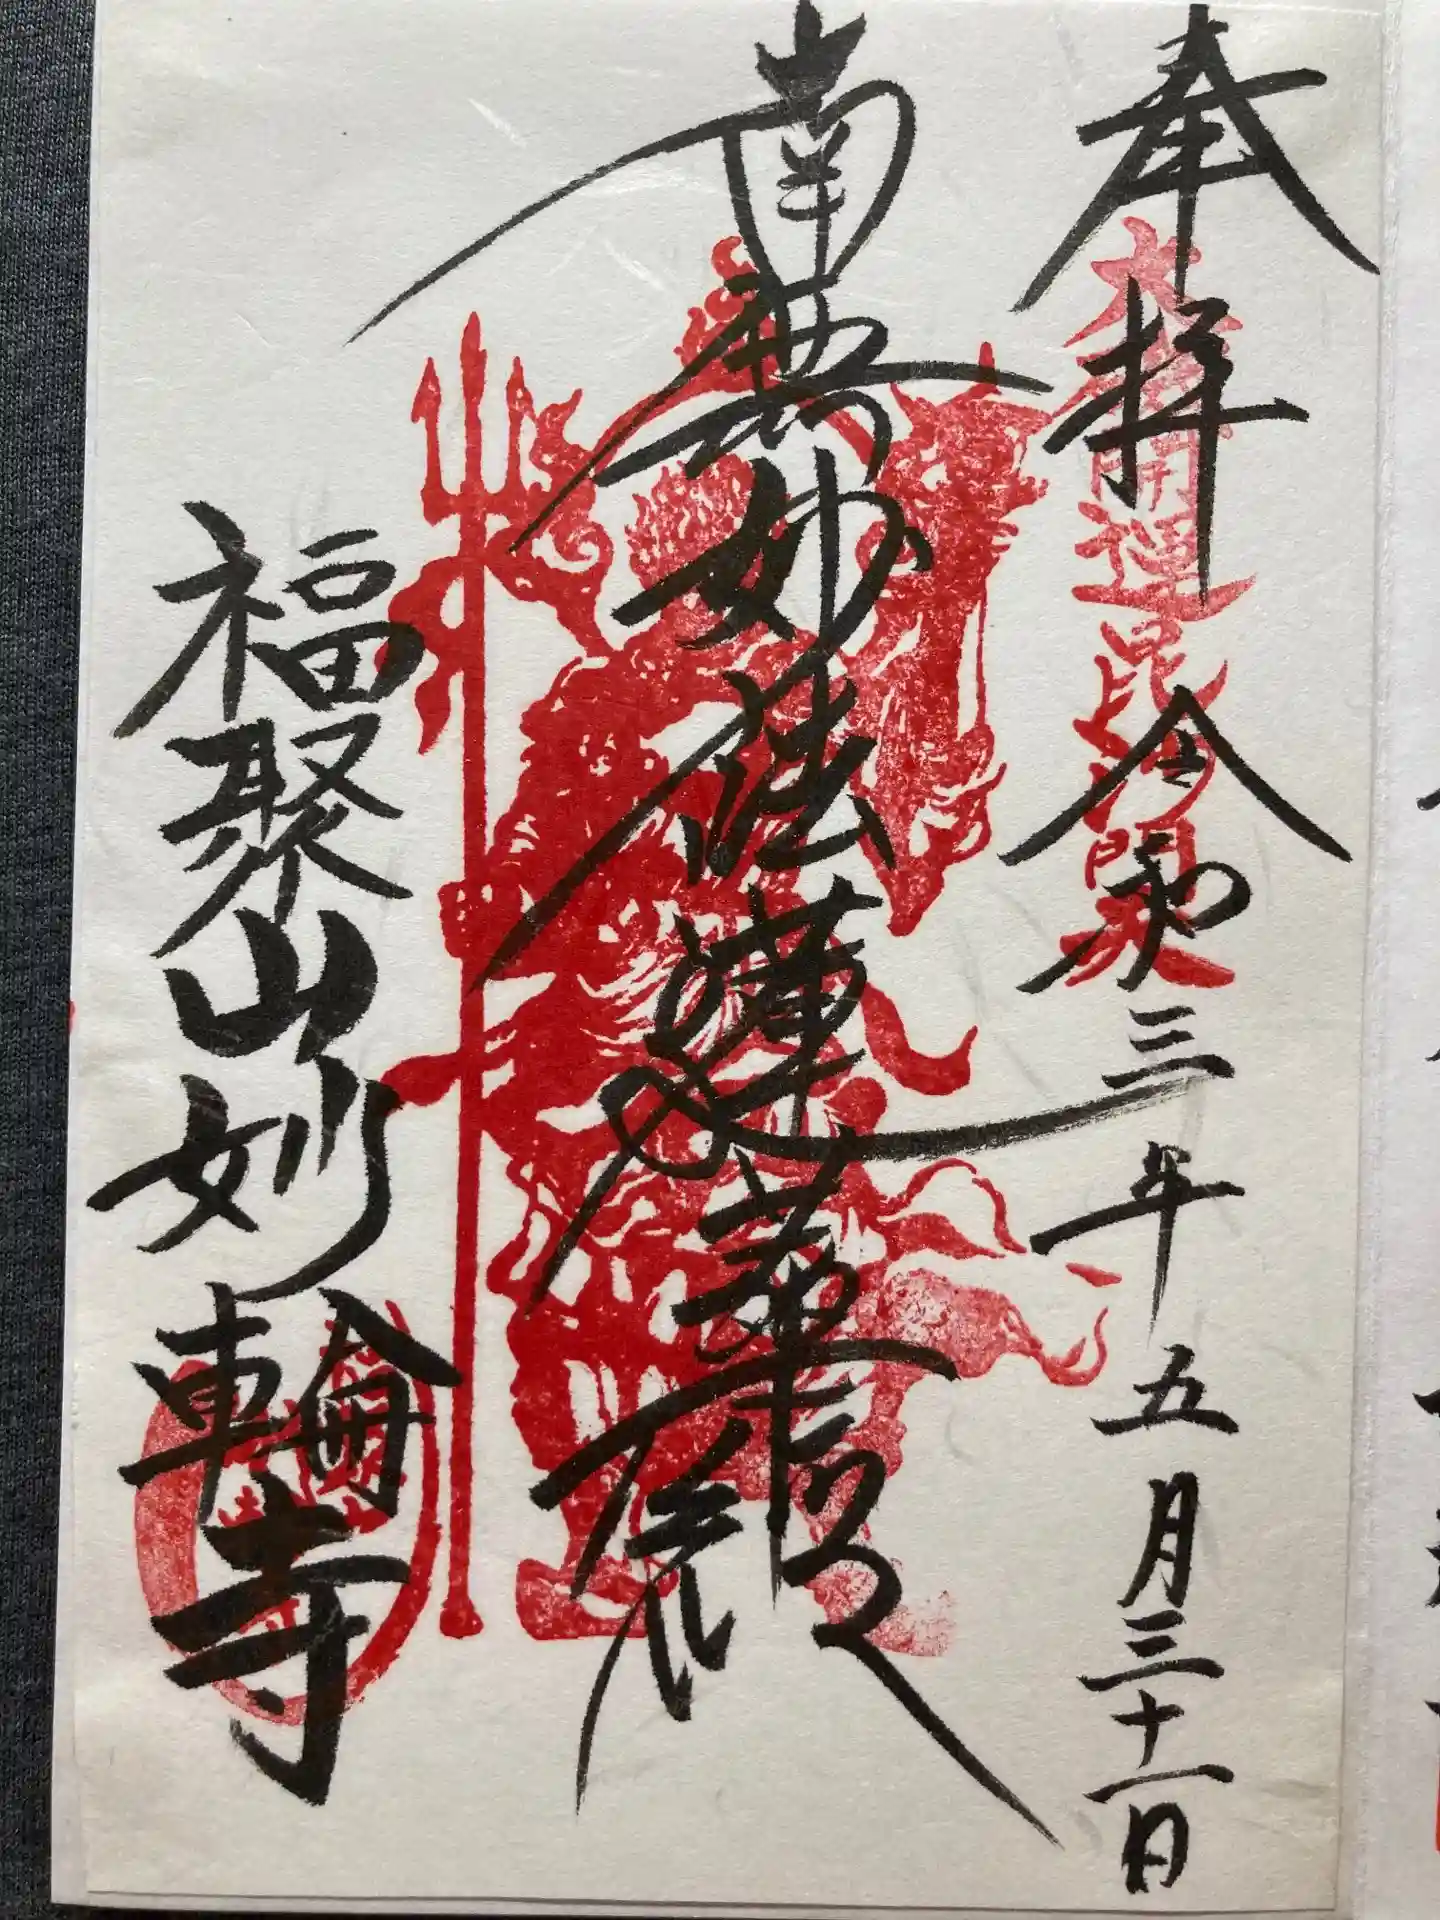 奉拝 令和三年五月三十一日
開運毘沙門天
南無妙法蓮華経
福聚山妙輪寺